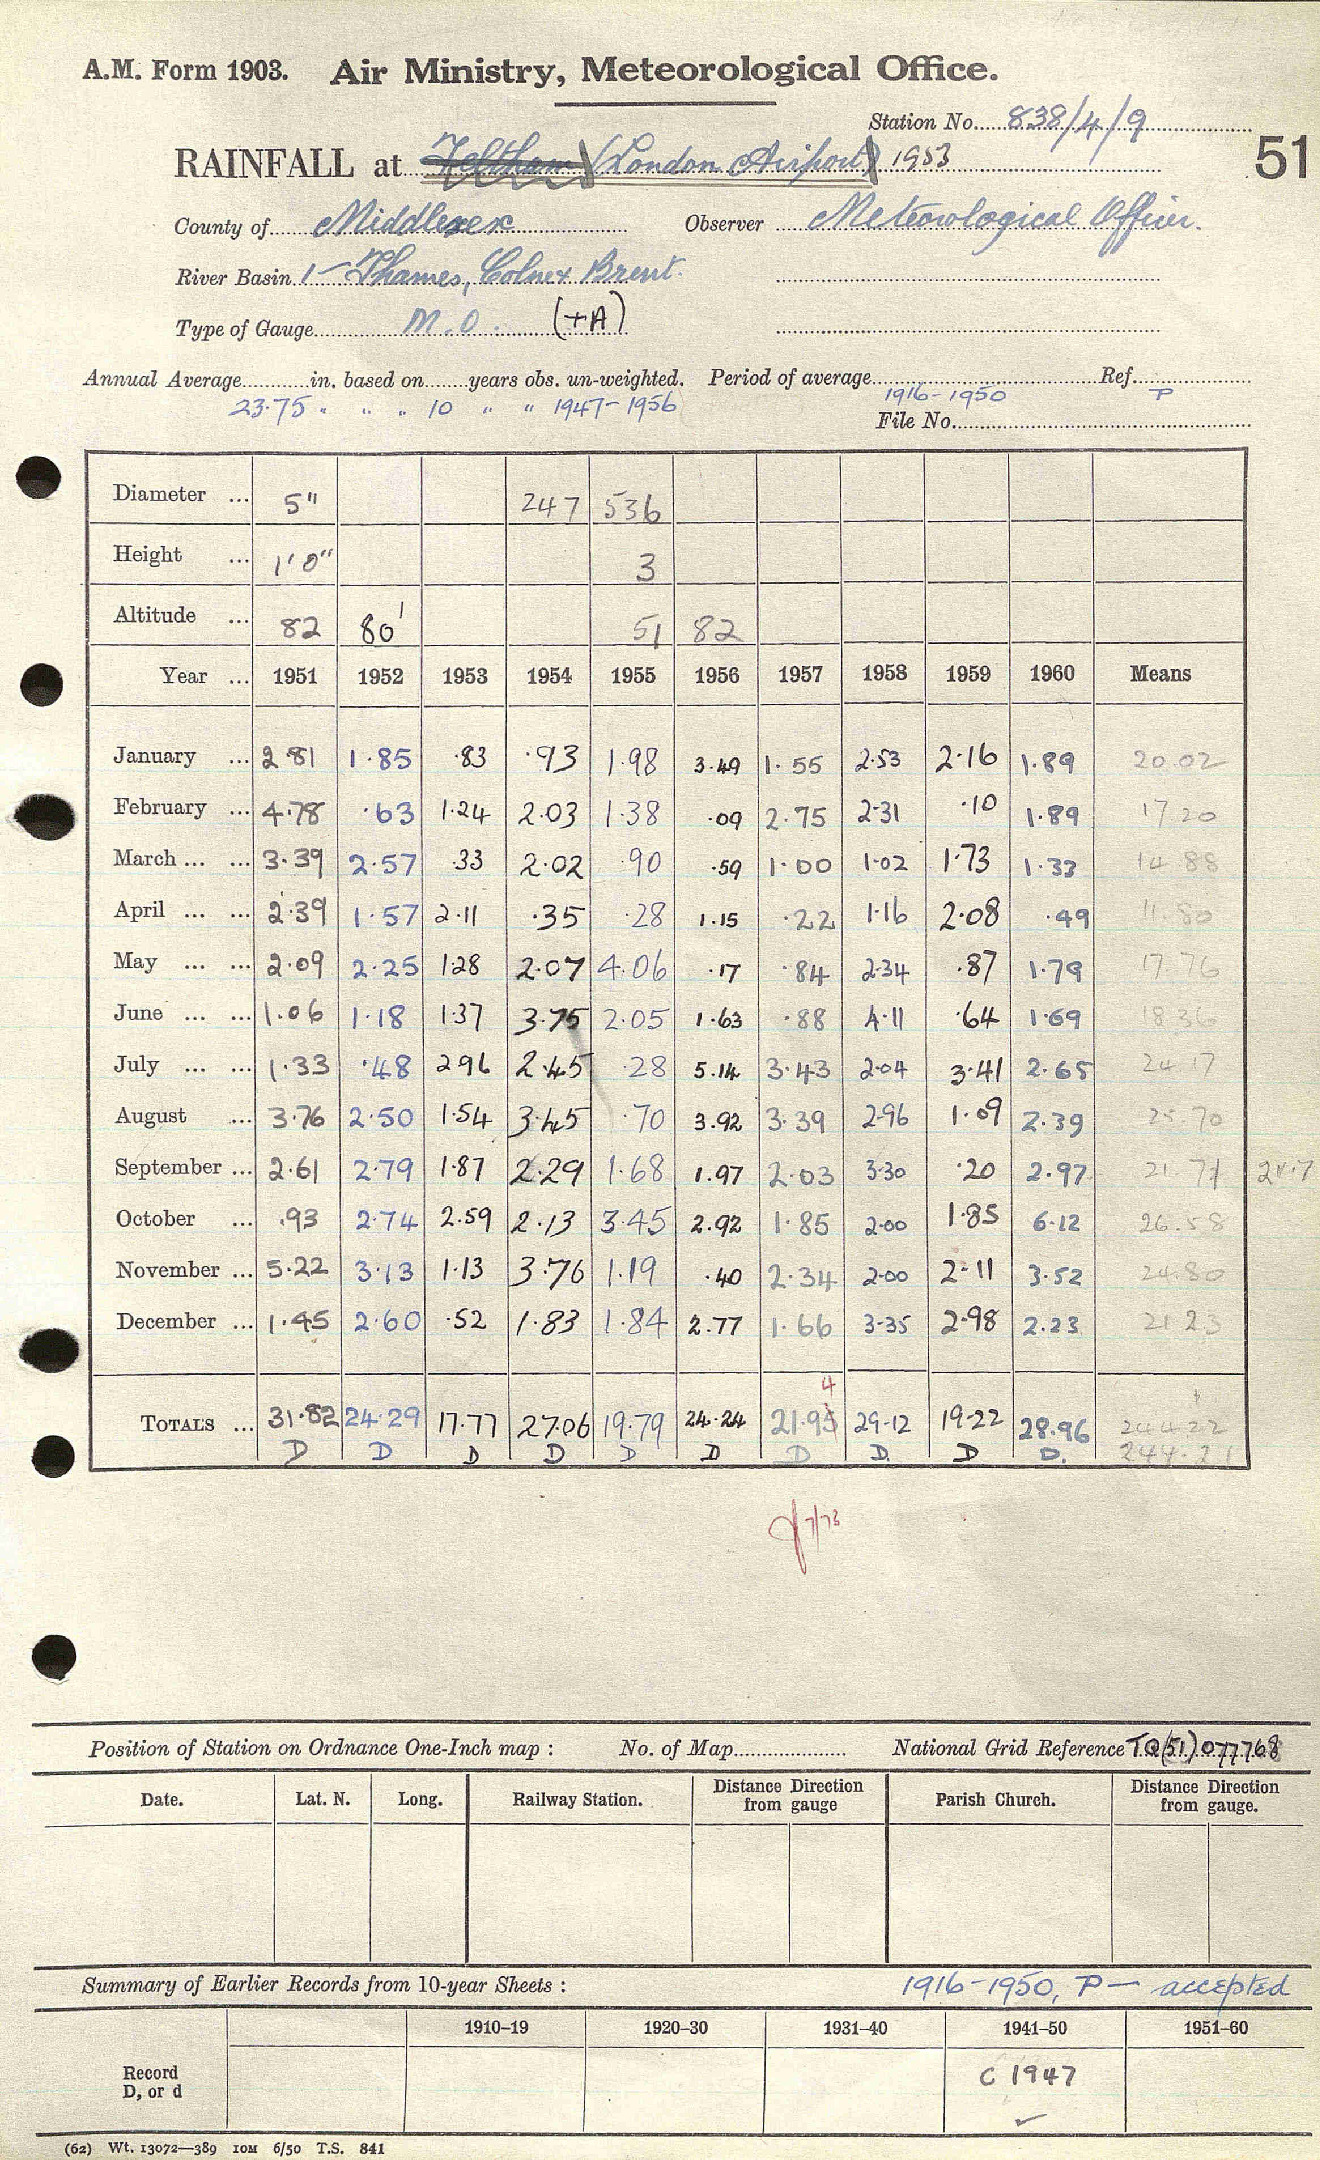 A.M. Form 1903. Air Ministry, Meteorological Office.
Station No. 838/4/9
RAINFALL at Feltham (London Airport) 1953
51
County of Middlesex Observer Meteorological Officer.
River Basin 1 - Thames, Colne & Brent.
Type of Gauge M.O. (+A)
Annual Average in. based on years obs. un-weighted. Period of average 1916-1950 Ref. P
23.75 " " " 10 " " 1947-1956
File No.
Diameter ... 5" 247 536
Height ... 1'0" 3
Altitude ... 82 80' 51 82
Year ... 1951 1952 1953 1954 1955 1956 1957 1958 1959 1960 Means
January ... 2.81 1.85 .83 .93 1.98 3.49 1.55 2.53 2.16 1.89 20.02
February ... 4.78 .63 1.24 2.03 1.38 .09 2.75 2.31 .10 1.89 17.20
March ... ... 3.39 2.57 .33 2.02 .90 .59 1.00 1.02 1.73 1.33 14.88
April ... ... 2.39 1.57 2.11 .35 .28 1.15 .22 1.16 2.08 .49 11.80
May ... ... 2.09 2.25 1.28 2.07 4.06 .17 .84 2.34 .87 1.79 17.76
June ... ... 1.06 1.18 1.37 3.75 2.05 1.63 .88 4.11 .64 1.69 18.36
July ... ... 1.33 .48 2.96 2.45 .28 5.14 3.43 2.04 3.41 2.65 24.17
August ... 3.76 2.50 1.54 3.45 .70 3.92 3.39 2.96 1.09 2.39 25.70
September ... 2.61 2.79 1.87 2.29 1.68 1.97 2.03 3.30 .20 2.97 21.71
October ... .93 2.74 2.59 2.13 3.45 2.92 1.85 2.00 1.85 6.12 26.58
November ... 5.22 3.13 1.13 3.76 1.19 .40 2.34 2.00 2.11 3.52 24.80
December ... 1.45 2.60 .52 1.83 1.84 2.77 1.66 3.35 2.98 2.23 21.23
4
TOTALS ... 31.82 24.29 17.77 27.06 19.79 24.24 21.95 29.12 19.22 28.96 244.22
D D D D D D D D. D D. 244.21
7/73
Position of Station on Ordnance One-Inch map : No. of Map National Grid Reference TQ(51)077768
Date. Lat. N. Long. Railway Station. Distance Direction from gauge Parish Church. Distance Direction from gauge.
Summary of Earlier Records from 10-year Sheets : 1916-1950, P - accepted
1910–19 1920–30 1931–40 1941–50 1951–60
Record D, or d C 1947
(62) Wt. 13072—389 10M 6/50 T.S. 841